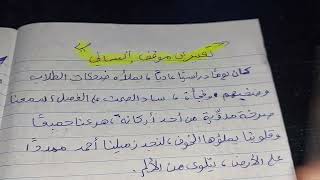 تعبير عن موقف إنساني
كان يومًا دراسيًا عاديًا، يملؤه ضحكات الطلاب
وضجيجهم، وفجأة، ساد الصمت على الفصل، سمعنا
صرخة مدوّية من أحد أركانه، هرعنا جميعًا
وقلوبنا يملؤها الخوف، لنجد زميلنا أحمد ممددًا
على الأرض، يتلوى من الألم.